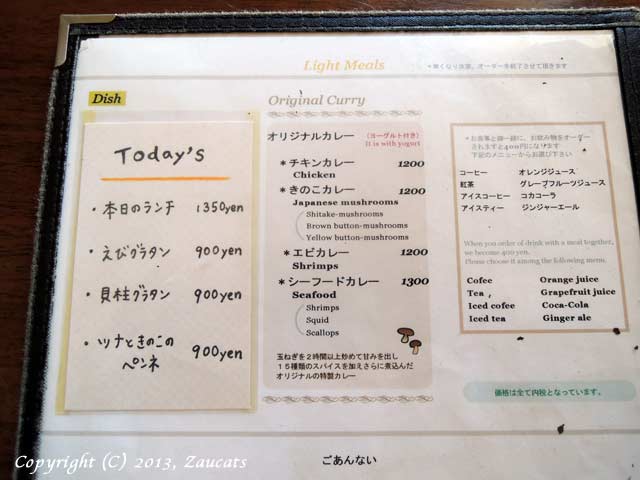 Light Meals
*無くなり次第、オーダーを終了させて頂きます
Dish
Today's
・本日のランチ 1350yen
・えびグラタン 900yen
・貝柱グラタン 900yen
・ツナときのこの
ペンネ 900yen
Original Curry
オリジナルカレー (ヨーグルト付き)
It is with yogurt
*チキンカレー 1200
Chicken
*きのこカレー 1200
Japanese mushrooms
Shitake-mushrooms
Brown button-mushrooms
Yellow button-mushrooms
*エビカレー 1200
Shrimps
*シーフードカレー 1300
Seafood
Shrimps
Squid
Scallops
玉ねぎを2時間以上炒めて甘みを出し
15種類のスパイスを加えさらに煮込んだ
オリジナルの特製カレー
*お食事と御一緒に、お飲み物をオーダー
されますと400円になります
下記のメニューからお選び下さい
コーヒー オレンジジュース
紅茶 グレープフルーツジュース
アイスコーヒー コカコーラ
アイスティー ジンジャーエール
When you order of drink with a meal together,
we become 400 yen.
Please choose it among the following menu.
Cofee Orange juice
Tea , Grapefruit juice
Iced cofee Coca-Cola
Iced tea Ginger ale
価格は全て内税となっています。
ごあんない
Copyright (C) 2013, Zaucats